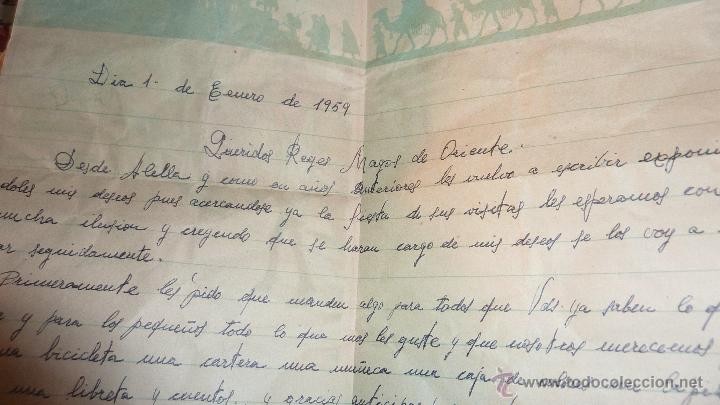 Dia 1- de Enero de 1959
Queridos Reyes Magos de Oriente.
Desde Alella y como en años anteriores les vuelvo a escribir exponi
doles mis deseos pues acercandose ya la fiesta de sus visitas les esperamos con
mucha ilusion y creyendo que se haran cargo de mis deseos se los voy a
ar seguidamente.
Primeramente les pido que manden algo para todos que Vds. ya saben lo q
e y para los pequeños todo lo que mas les guste y que nosotros merecemos
na bicicleta una cartera una muñeca una caja de un lapi
una libreta y cuentos. y gracias anticipa
todocoleccion
www.todocoleccion.net